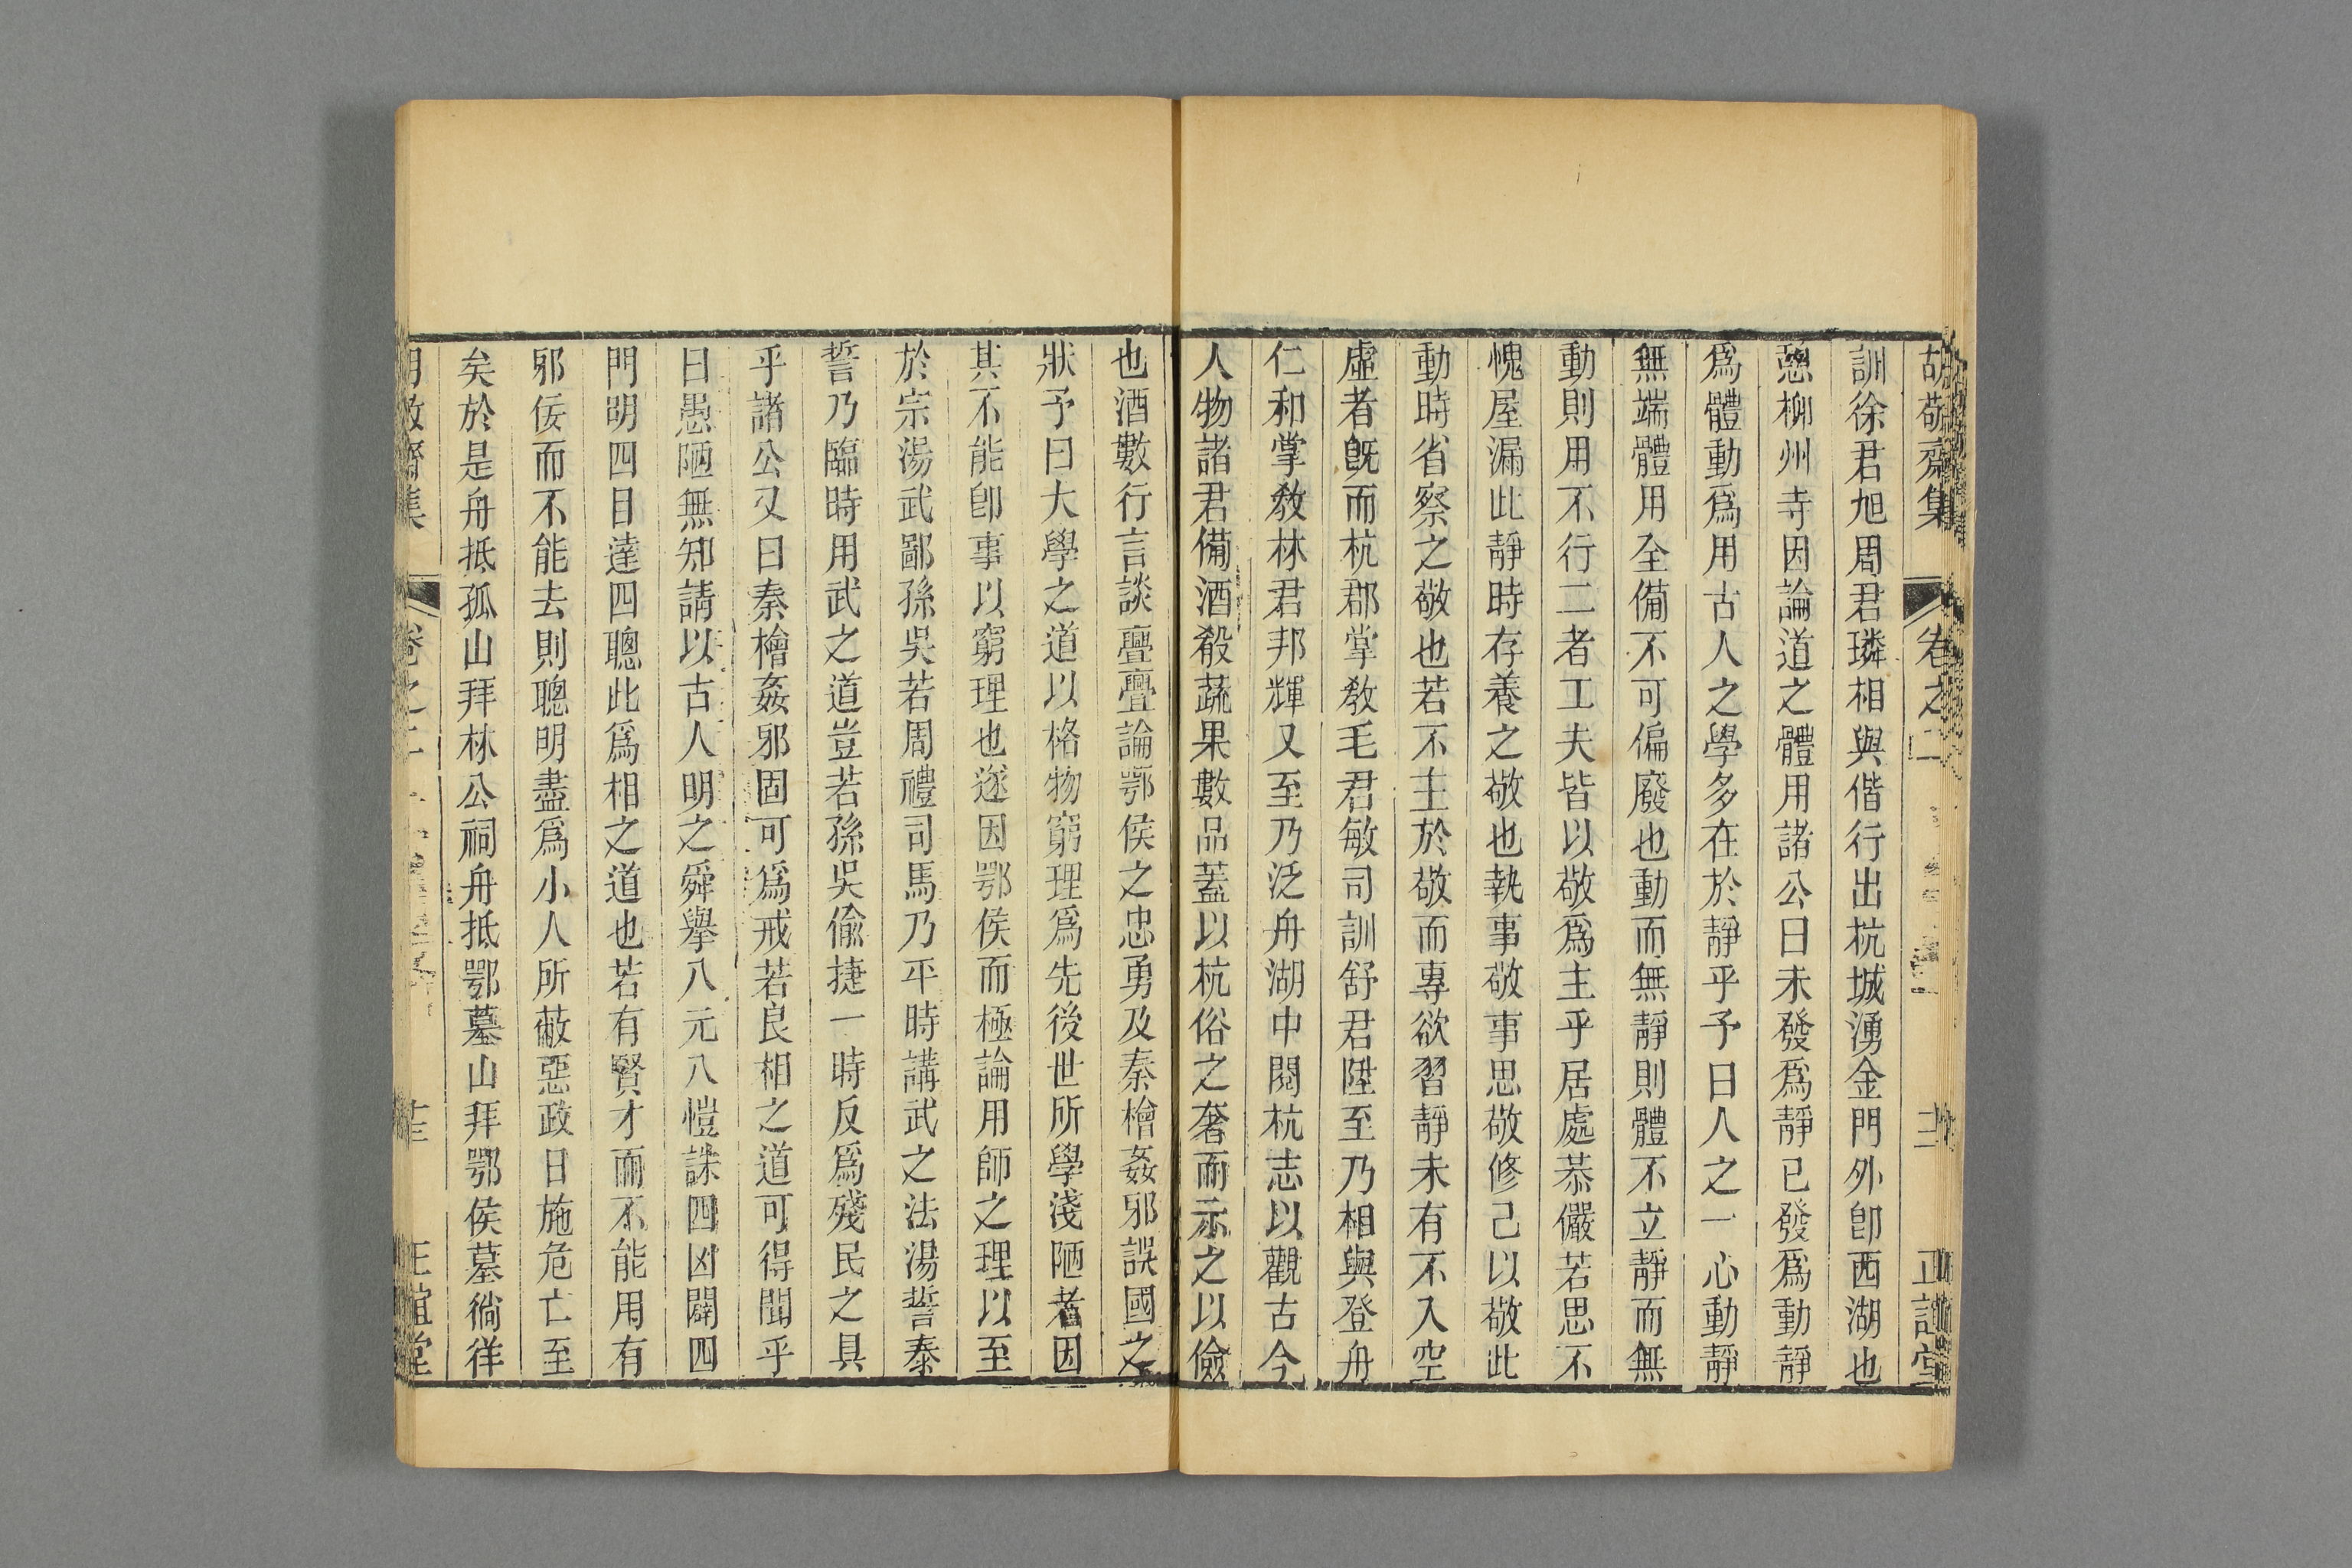 胡敬齋集 卷之二 正誼堂
訓徐君旭周君璘相與偕行出杭城湧金門外卽西湖也
憩柳州寺因論道之體用諸公曰未發爲靜已發爲動靜
爲體動爲用古人之學多在於靜乎予曰人之一心動靜
無端體用全備不可偏廢也動而無靜則體不立靜而無
動則用不行二者工夫皆以敬爲主乎居處恭儼若思不
愧屋漏此靜時存養之敬也執事敬事思敬修己以敬此
動時省察之敬也若不主於敬而專欲習靜未有不入空
虛者旣而杭郡掌敎毛君敏司訓舒君陞至乃相與登舟
仁和掌敎林君邦輝又至乃泛舟湖中閱杭志以觀古今
人物諸君備酒殽蔬果數品蓋以杭俗之奢而示之以儉
也酒數行言談亹亹論鄂侯之忠勇及秦檜姦邪誤國之
狀予曰大學之道以格物窮理爲先後世所學淺陋者因
其不能卽事以窮理也遂因鄂侯而極論用師之理以至
於宗湯武鄙孫吳若周禮司馬乃平時講武之法湯誓泰
誓乃臨時用武之道豈若孫吳偸捷一時反爲殘民之具
乎諸公又曰秦檜姦邪固可爲戒若良相之道可得聞乎
曰愚陋無知請以古人明之舜舉八元八愷誅四凶闢四
門明四目達四聰此爲相之道也若有賢才而不能用有
邪佞而不能去則聰明盡爲小人所蔽惡政日施危亡至
矣於是舟抵孤山拜林公祠舟抵鄂墓山拜鄂侯墓徜徉
胡敬齋集 卷之二 十三 正誼堂